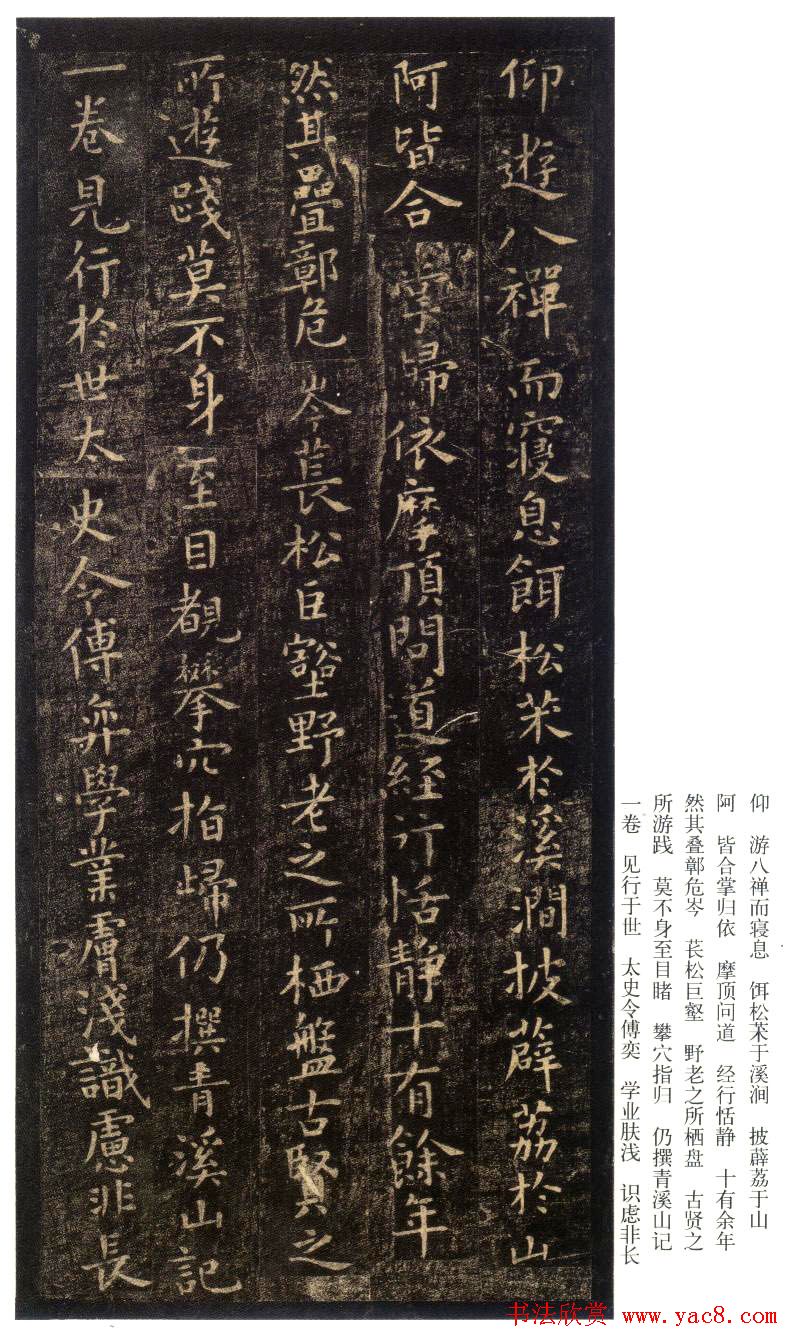 仰遊八禪而寢息餌松茮於溪澗披薜荔於山
阿皆合掌歸依摩頂問道經行恬靜十有餘年
然其疊鄣危岑萇松巨壑野老之所栖盤古賢之
所遊踐莫不身至目覩攀穴指歸仍撰青溪山記
一卷見行於世太史令傅弈學業膚淺識慮非長
仰 游八禅而寝息 饵松茮于溪涧 披薜荔于山
阿 皆合掌归依 摩顶问道 经行恬静 十有余年
然其叠鄣危岑 苌松巨壑 野老之所栖盘 古贤之
所游践 莫不身至目睹 攀穴指归 仍撰青溪山记
一卷 见行于世 太史令傅奕 学业肤浅 识虑非长
书法欣赏 www.yac8.com